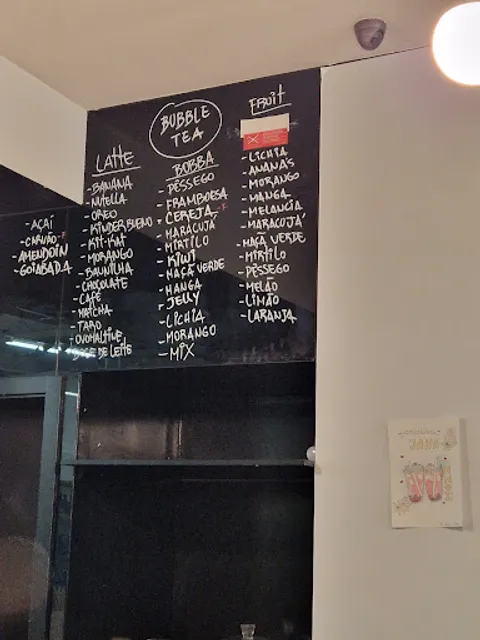 BUBBLE
TEA
LATTE
-BANANA
-NUTELLA
-OREO
-KINDER BUENO
-KIT-KAT
-MORANGO
-BAUNILHA
-CHOCOLATE
-CAFÉ
-MATCHA
-TARO
-OVOMALTINE
DOCE DE LEITE
-AÇAÍ
-CARVÃO
-AMENDOIN
-GOIABADA
BOBBA
-PÊSSEGO
-FRAMBOESA
-CEREJA
-MARACUJÁ
-MIRTILO
-KIWI
-MAÇÃ VERDE
-MANGA
-JELLY
-LICHIA
-MORANGO
-MIX
FRUIT
-LICHIA
-ANANÁS
-MORANGO
-MANGA
-MELANCIA
-MARACUJÁ
-MAÇÃ VERDE
-MIRTILO
-PÊSSEGO
-MELÃO
-LIMÃO
-LARANJA